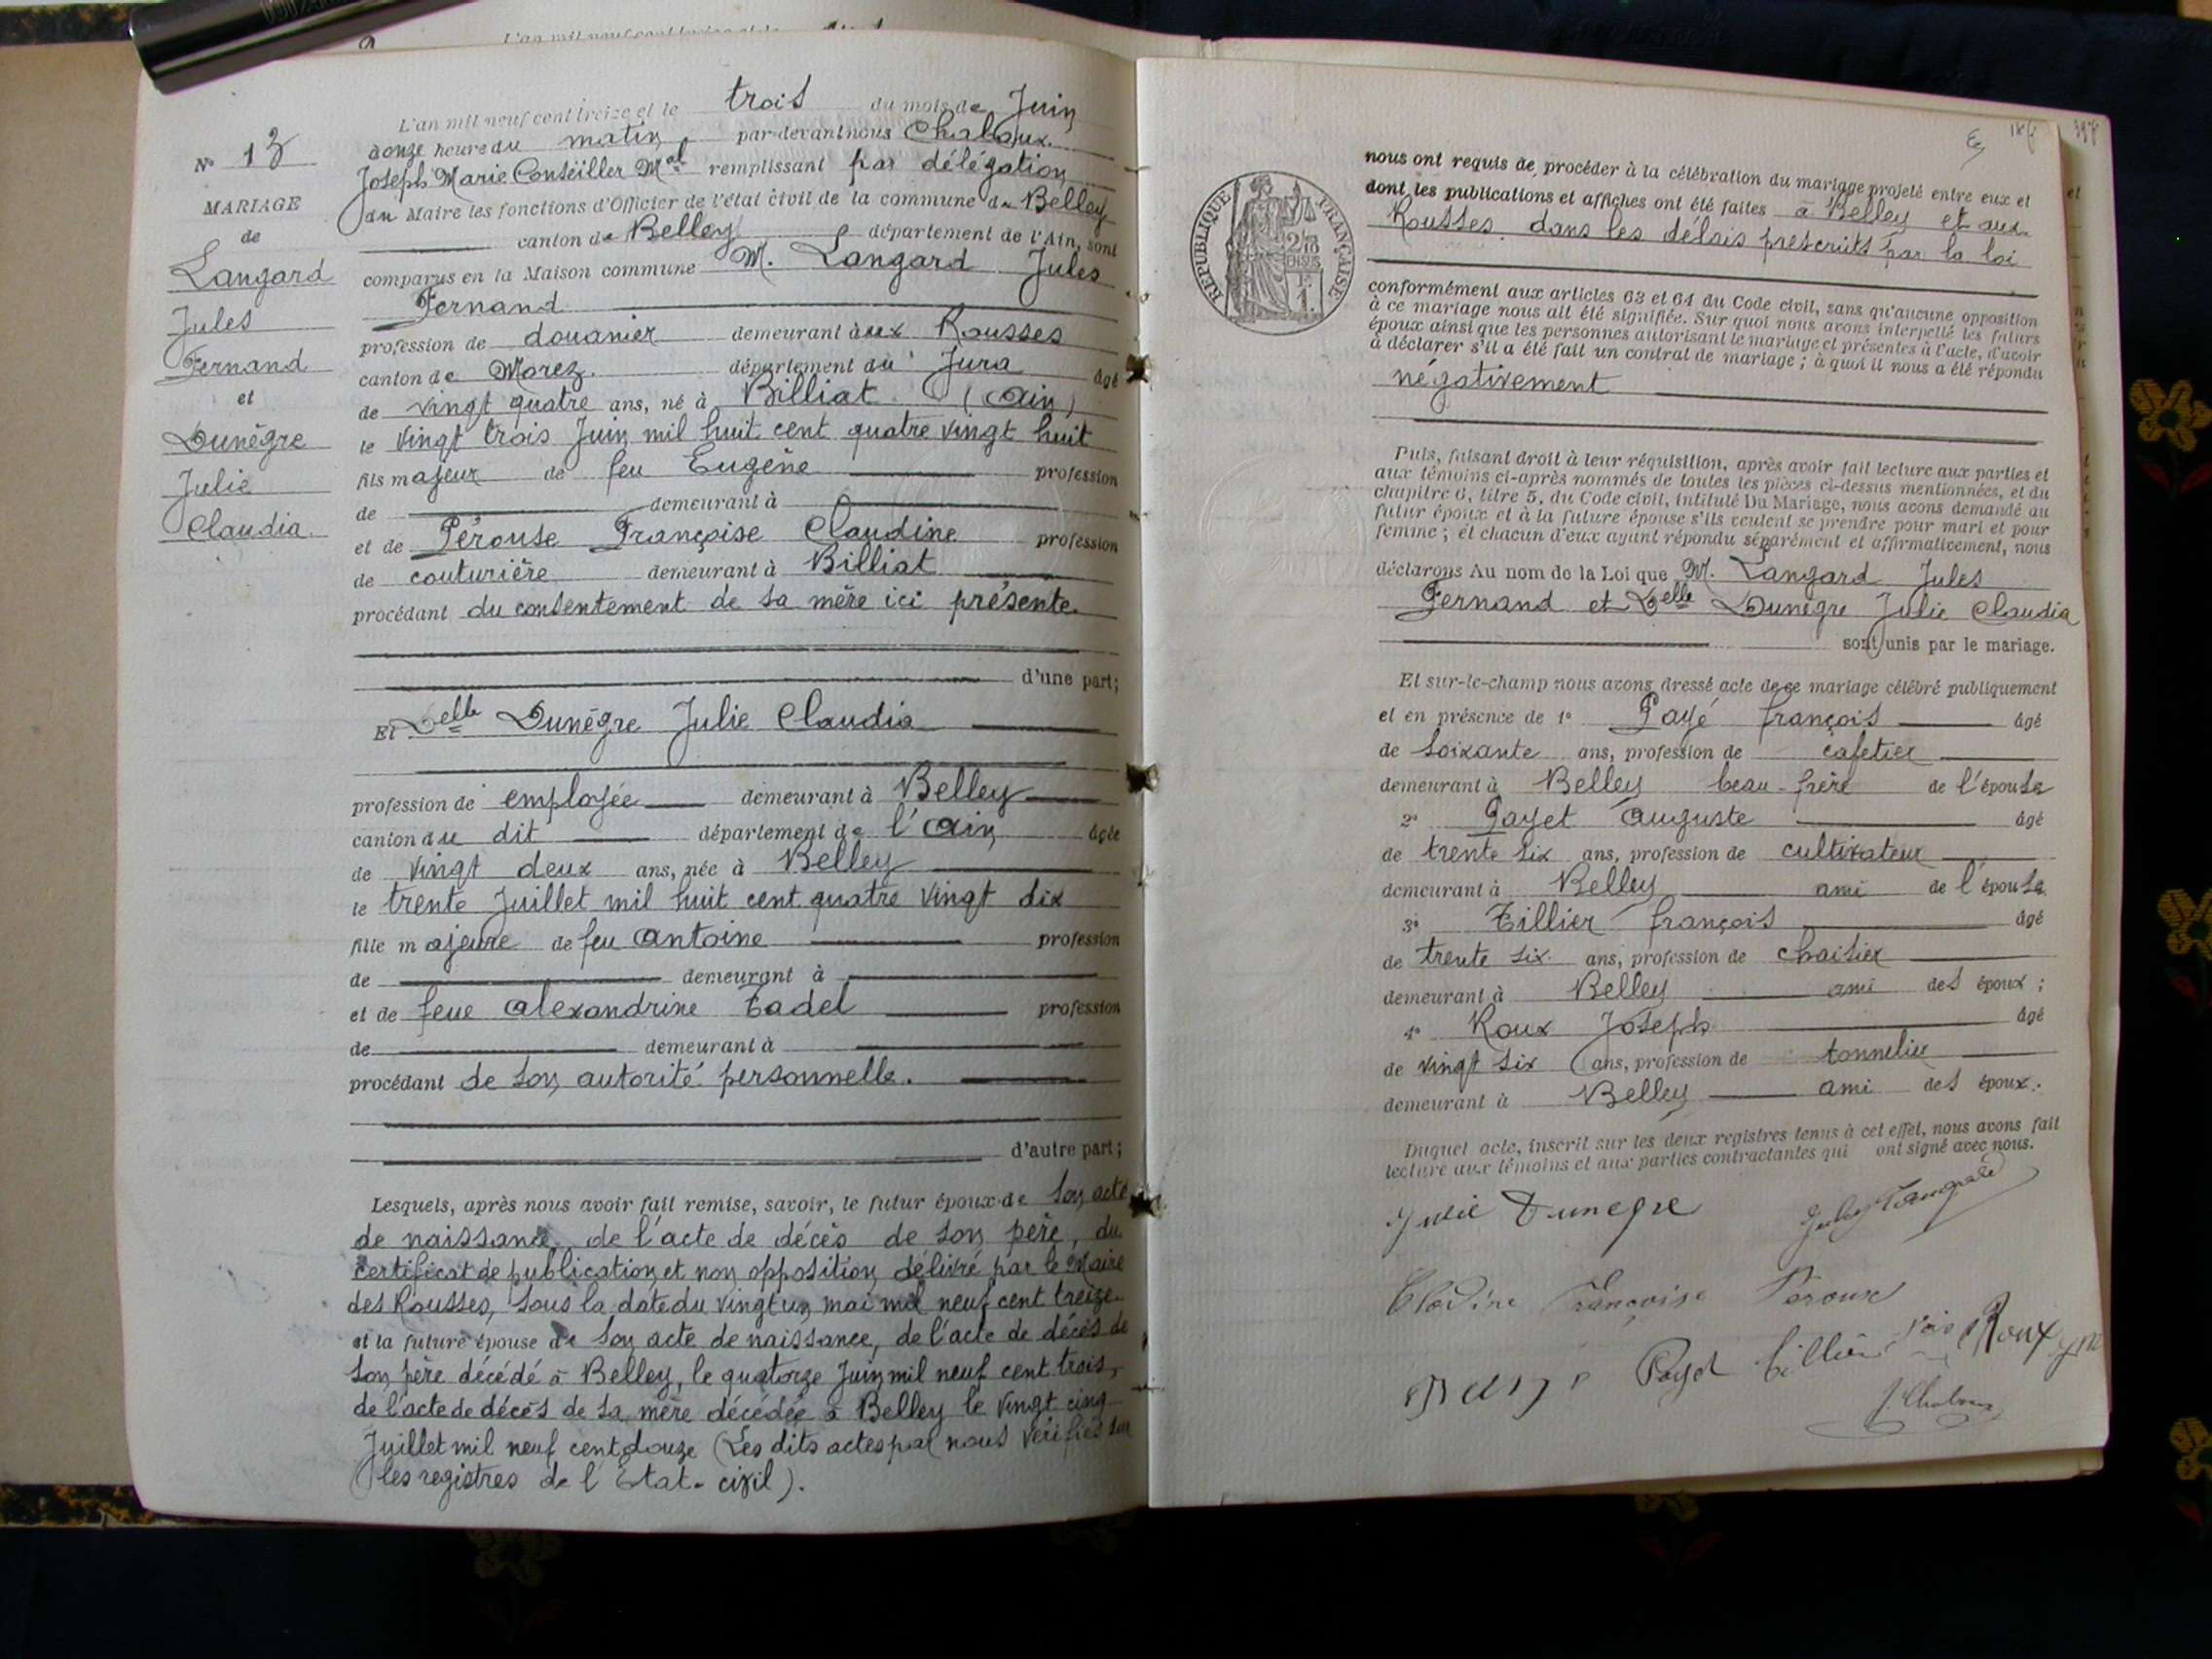 L'an mil neuf cent treize et le trois du mois de Juin
à onze heure du matin par-devant nous Chabaux
Joseph Marie Conseiller Mal remplissant par délégation
du Maire les fonctions d'Officier de l'état civil de la commune de Belley
canton de Belley département de l'Ain, sont
comparus en la Maison commune M. Langard Jules
Fernand
profession de douanier demeurant aux Rousses
canton de Morez département du Jura âgé
de vingt quatre ans, né à Billiat (Ain)
le vingt trois Juin mil huit cent quatre vingt huit
fils majeur de feu Eugène profession
de demeurant à
et de Pérouse Françoise Claudine profession
de couturière demeurant à Billiat
procédant du consentement de sa mère ici présente.
d'une part;
Et Delle Dunègre Julie Claudia
profession de employée demeurant à Belley
canton du dit département de l'Ain âgée
de vingt deux ans, née à Belley
le trente Juillet mil huit cent quatre vingt dix
fille majeure de feu Antoine profession
de demeurant à
et de feue Alexandrine Tadel profession
de demeurant à
procédant de son autorité personnelle.
d'autre part;
Lesquels, après nous avoir fait remise, savoir, le futur époux de son acte
de naissance, de l'acte de décès de son père, du
certificat de publication et non opposition délivré par le Maire
des Rousses, sous la date du vingt un mai mil neuf cent treize.
et la future épouse de son acte de naissance, de l'acte de décès de
son père décédé à Belley, le quatorze Juin mil neuf cent trois,
de l'acte de décès de sa mère décédée à Belley le vingt cinq
Juillet mil neuf cent douze (Les dits actes par nous vérifiés sur
les registres de l'Etat-civil).
N° 13
MARIAGE
de
Langard
Jules
Fernand
et
Dunègre
Julie
Claudia.
REPUBLIQUE FRANÇAISE
2/10 EN SUS
1 F.
nous ont requis de procéder à la célébration du mariage projeté entre eux et
dont les publications et affiches ont été faites à Belley et aux
Rousses dans les délais prescrits par la loi
conformément aux articles 63 et 64 du Code civil, sans qu'aucune opposition
à ce mariage nous ait été signifiée. Sur quoi nous avons interpellé les futurs
époux ainsi que les personnes autorisant le mariage et présentes à l'acte, d'avoir
à déclarer s'il a été fait un contrat de mariage; à quoi il nous a été répondu
négativement
Puis, faisant droit à leur réquisition, après avoir fait lecture aux parties et
aux témoins ci-après nommés de toutes les pièces ci-dessus mentionnées, et du
chapitre 6, titre 5, du Code civil, intitulé Du Mariage, nous avons demandé au
futur époux et à la future épouse s'ils veulent se prendre pour mari et pour
femme; et chacun d'eux ayant répondu séparément et affirmativement, nous
déclarons Au nom de la Loi que M. Langard Jules
Fernand et Delle Dunègre Julie Claudia
sont unis par le mariage.
Et sur-le-champ nous avons dressé acte de ce mariage célébré publiquement
et en présence de 1° Payé françois âgé
de soixante ans, profession de cafetier
demeurant à Belley beau-frère de l'épouse
2° Payet Auguste âgé
de trente six ans, profession de cultivateur
demeurant à Belley ami de l'épouse
3° Tillier françois âgé
de trente six ans, profession de chaisier
demeurant à Belley ami des époux;
4° Roux Joseph âgé
de vingt six ans, profession de tonnelier
demeurant à Belley ami des époux.
Duquel acte, inscrit sur les deux registres tenus à cet effet, nous avons fait
lecture aux témoins et aux parties contractantes qui ont signé avec nous.
Julie Dunegre Jules Langard
Clodine Françoise Pérouse
Payet Tillier Roux
J. Chabaux